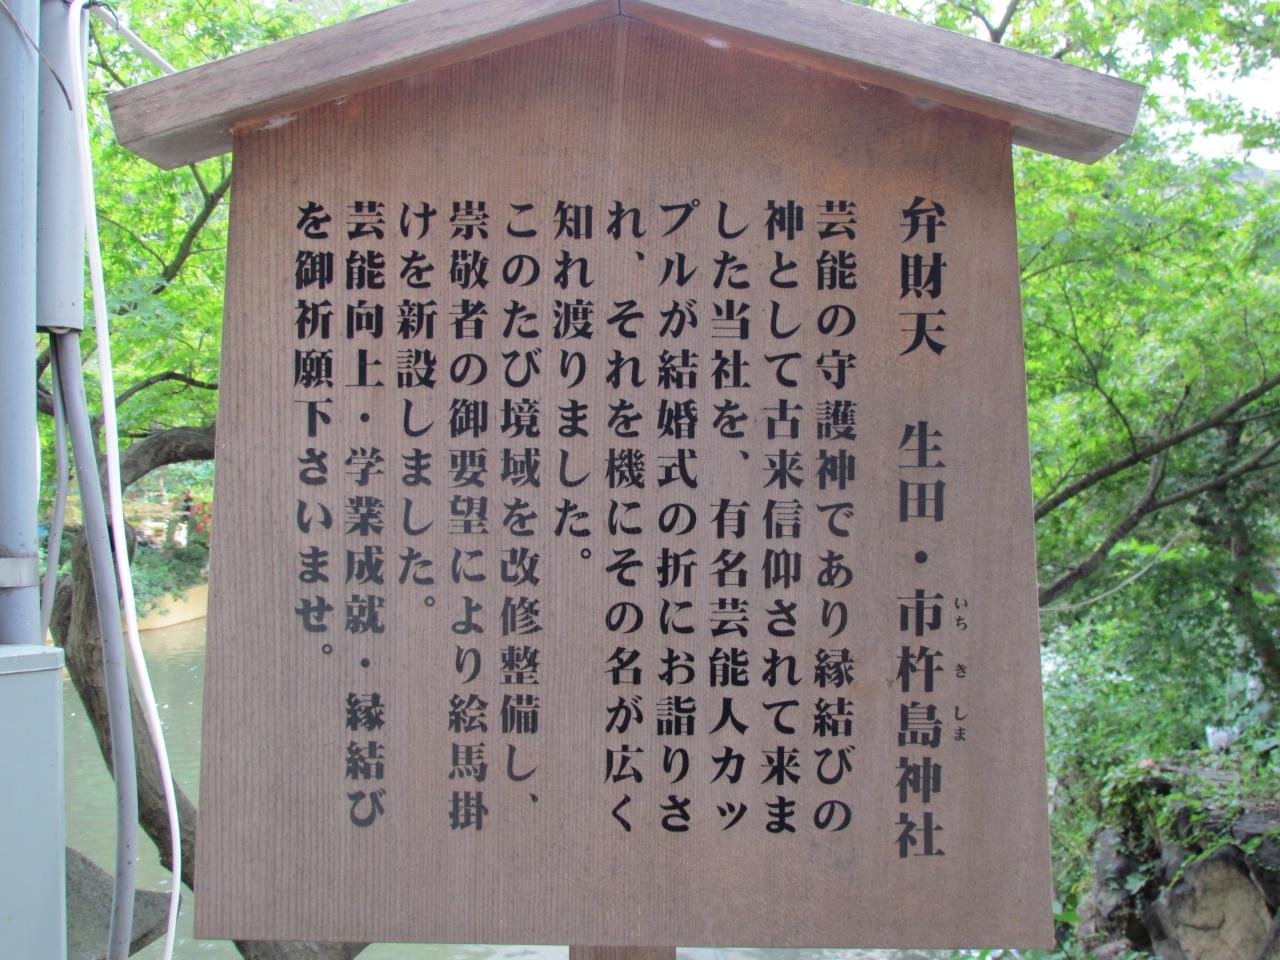 弁財天　生田・市杵島神社
いち き しま
芸能の守護神であり縁結びの
神として古来信仰されて来ま
した当社を、有名芸能人カッ
プルが結婚式の折にお詣りさ
れ、それを機にその名が広く
知れ渡りました。
このたび境域を改修整備し、
崇敬者の御要望により絵馬掛
けを新設しました。
芸能向上・学業成就・縁結び
を御祈願下さいませ。